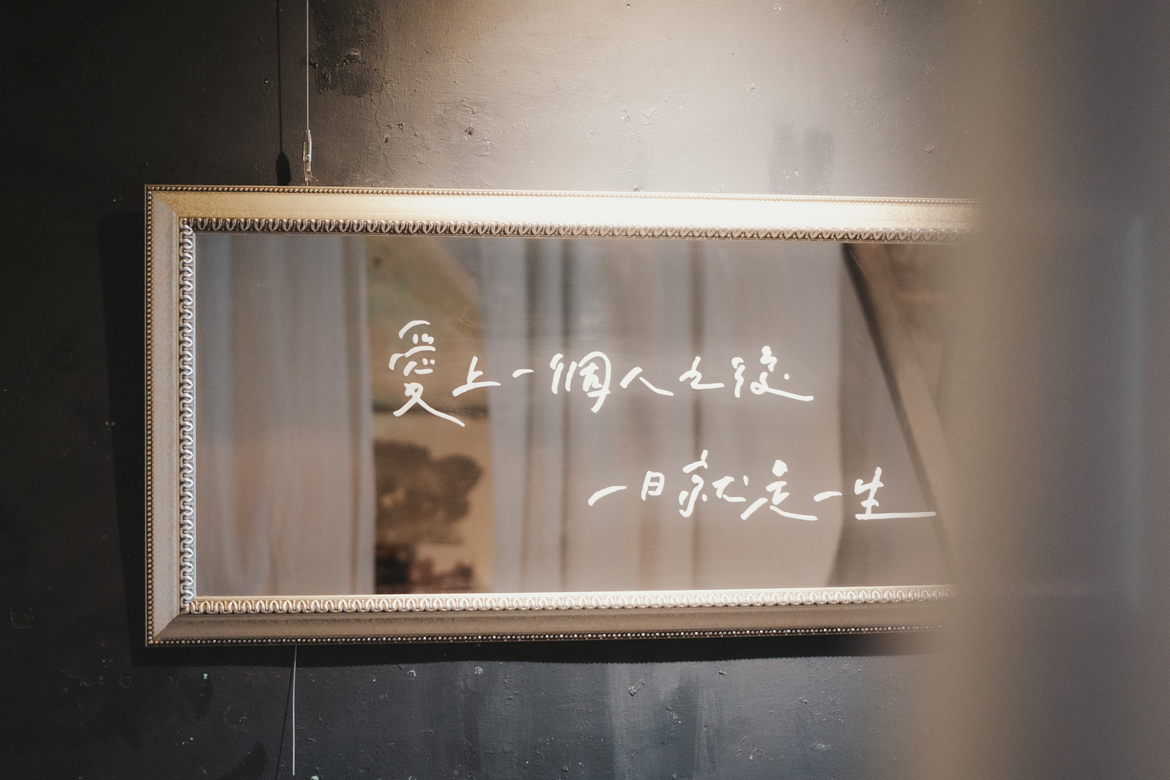 愛上一個人之後
一日就是一生